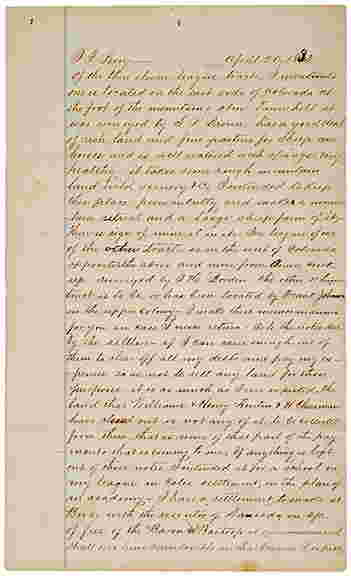 J F Perry April 20, 1833
Of the three eleven league tracts I mentioned
one is located on the east side of Colorado at
the foot of the mountains above Tannehill it
was surveyed by S. F. Brown. has a good deal
of rich land and fine pasture for sheep and
horses and is well watered with springs very
healthy. it takes some rough mountain
land hills scenery &c I intended to keep
this place permanently and make a
retreat and a large sheep farm of it
there is sign of mineral in it. Ten leagues of one
of the other tracts is on the west of Colorado
opposite the above and runs from
up surveyed by T. H. Borden the other eleven
tract is to be, or has been located by Frank Johnson
in the upper colony I make this memorandum
for you in case I never return. As to the notes due
by the settlers if I can save enough out of
them to clear off all my debts and pay my
so as not to sell any land for those
purposes it is as much as I ever expected. the
land that Williams & Henry &
have out is not any of it to be collected
from them that is none of that part of the pay
ments that is coming to me. If anything is left
out of those notes I intended it for a school on
my league in settlement, on the plan of
an academy. I have a settlement to make at
with the
of the Baron de Bastrop it
shall we have considerable in the